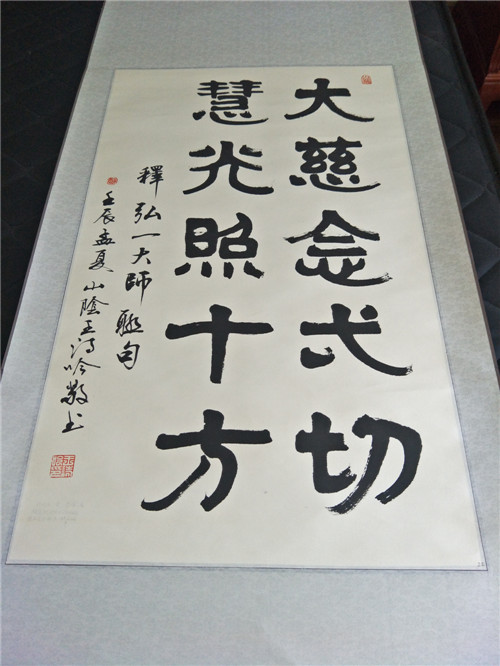 大慈念弌切
慧光照十方
釋弘一大師聯句
壬辰孟夏山陰王吟敬书